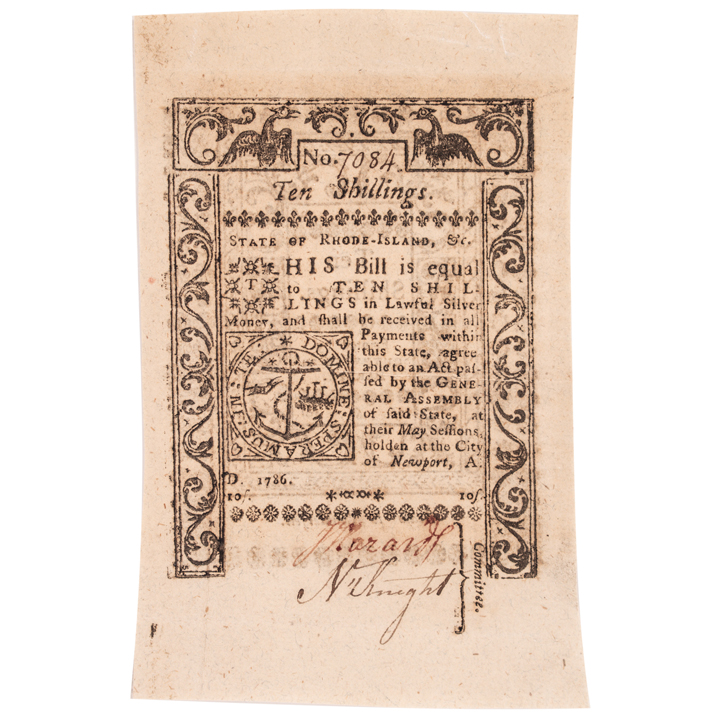 No. 7084
Ten Shillings.
STATE OF RHODE-ISLAND, &c.
THIS Bill is equal
to TEN SHIL-
LINGS in Lawful Silver
Money, and ſhall be received in all
Payments within
this State, agree-
able to an Act paſ-
ſed by the GENE-
RAL ASSEMBLY
of ſaid State, at
their May Seſſions,
holden at the City
of Newport, A.
D. 1786.
IN TE DOMINE SPERAMUS
10ſ. 10ſ.
J Hazard
Ns Knight
Committee.